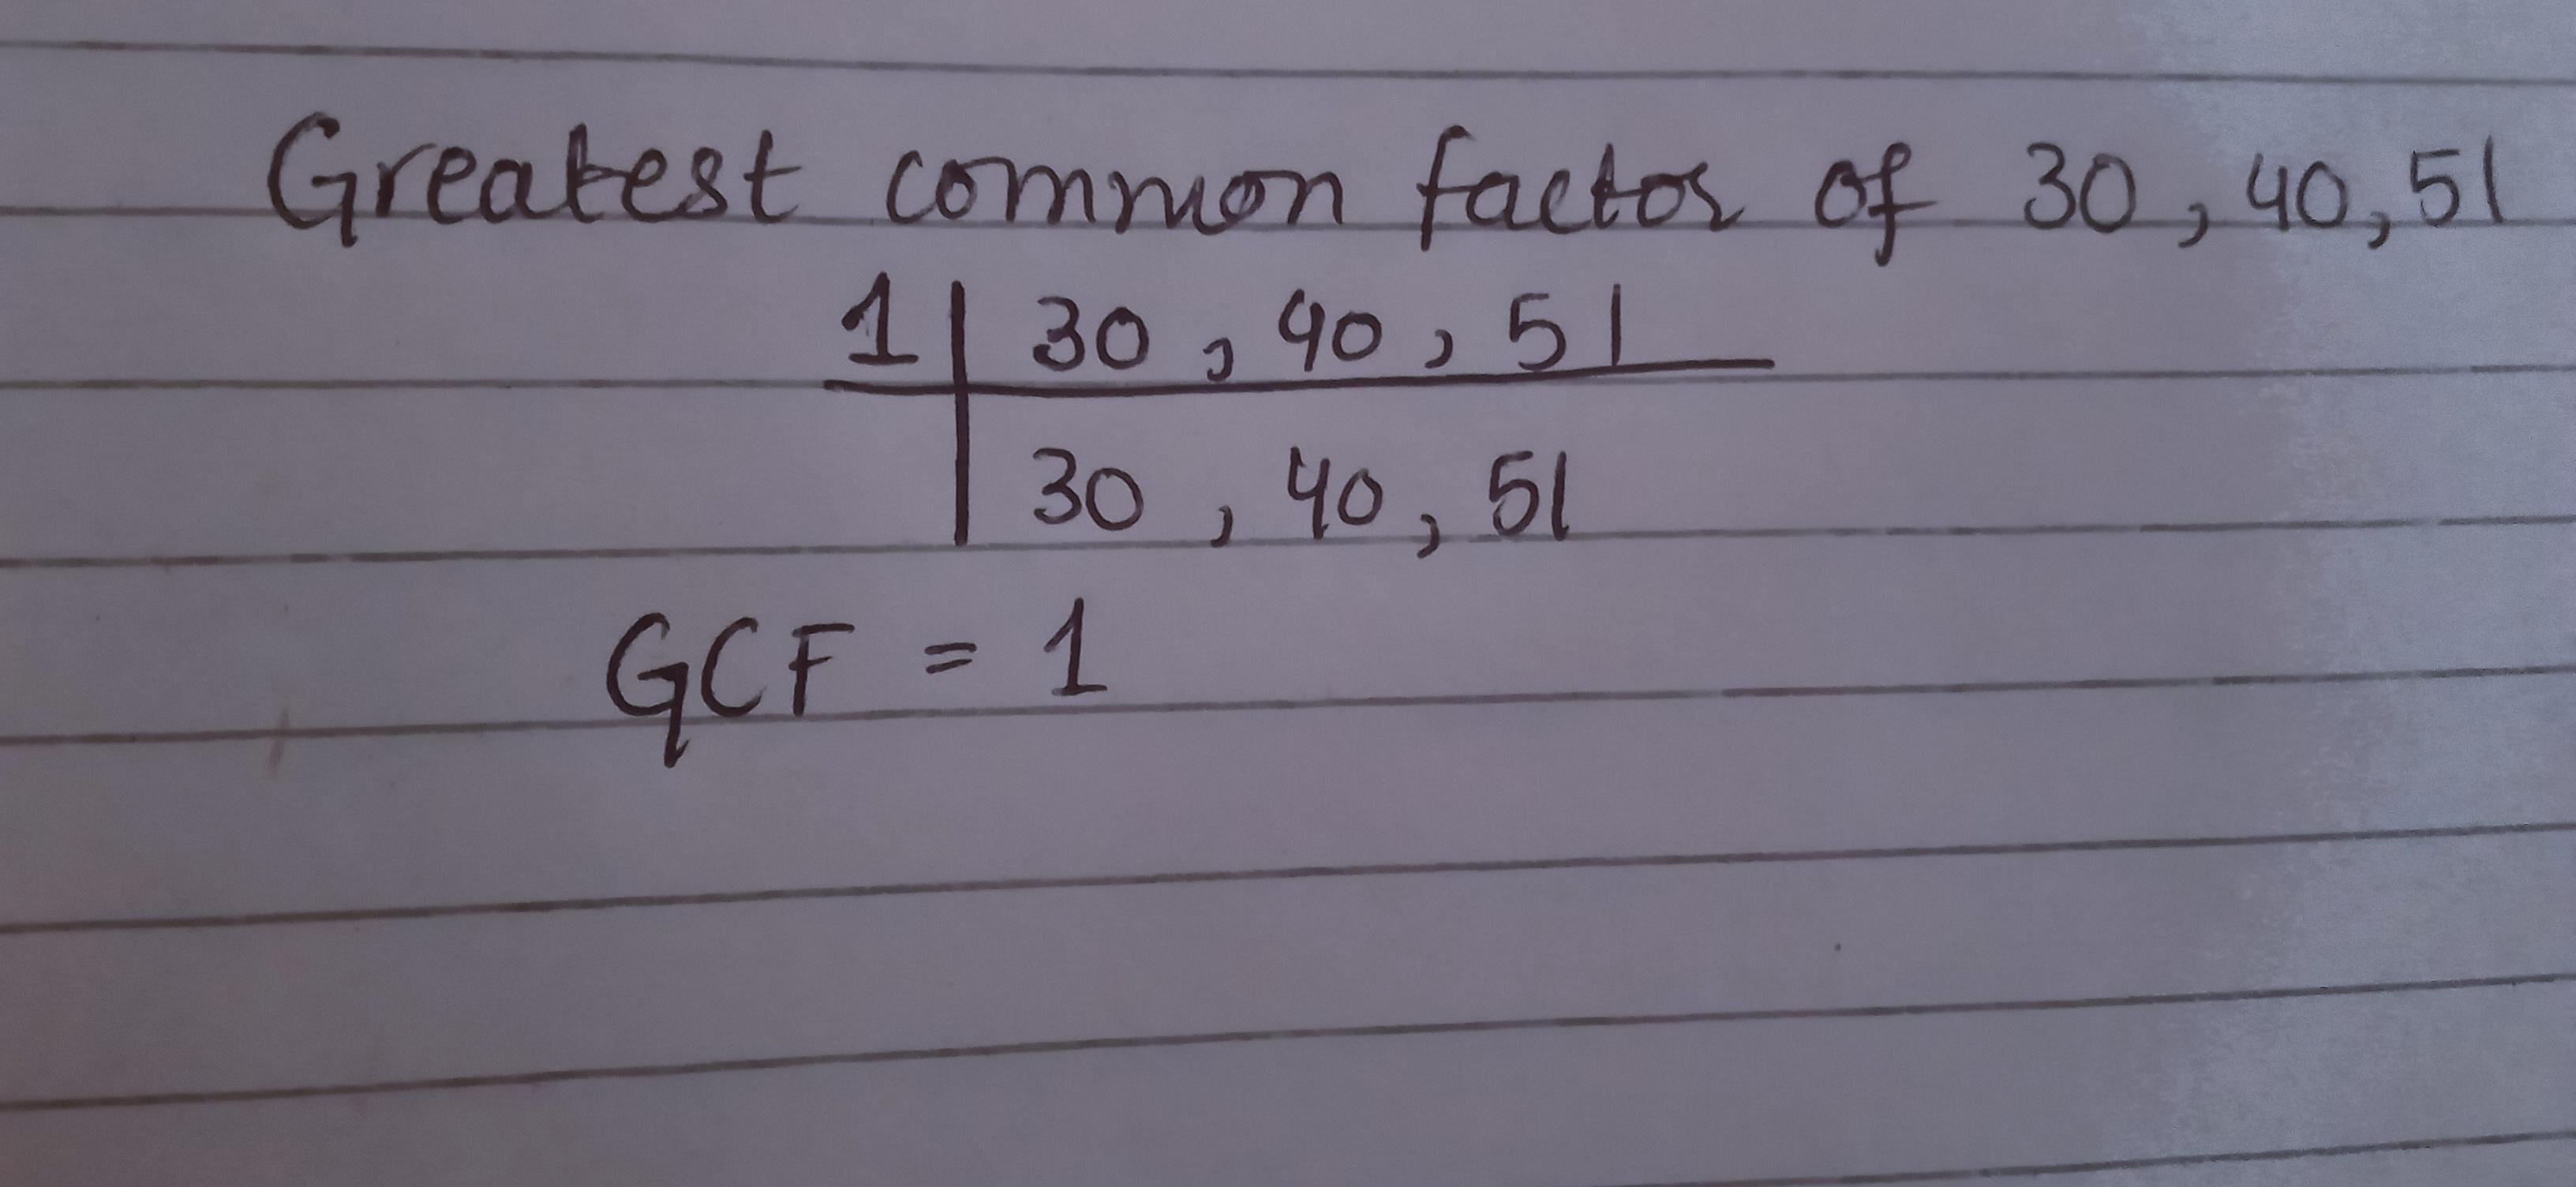 Greatest common factor of 30, 40, 51
1 | 30, 40, 51
30, 40, 51
GCF = 1